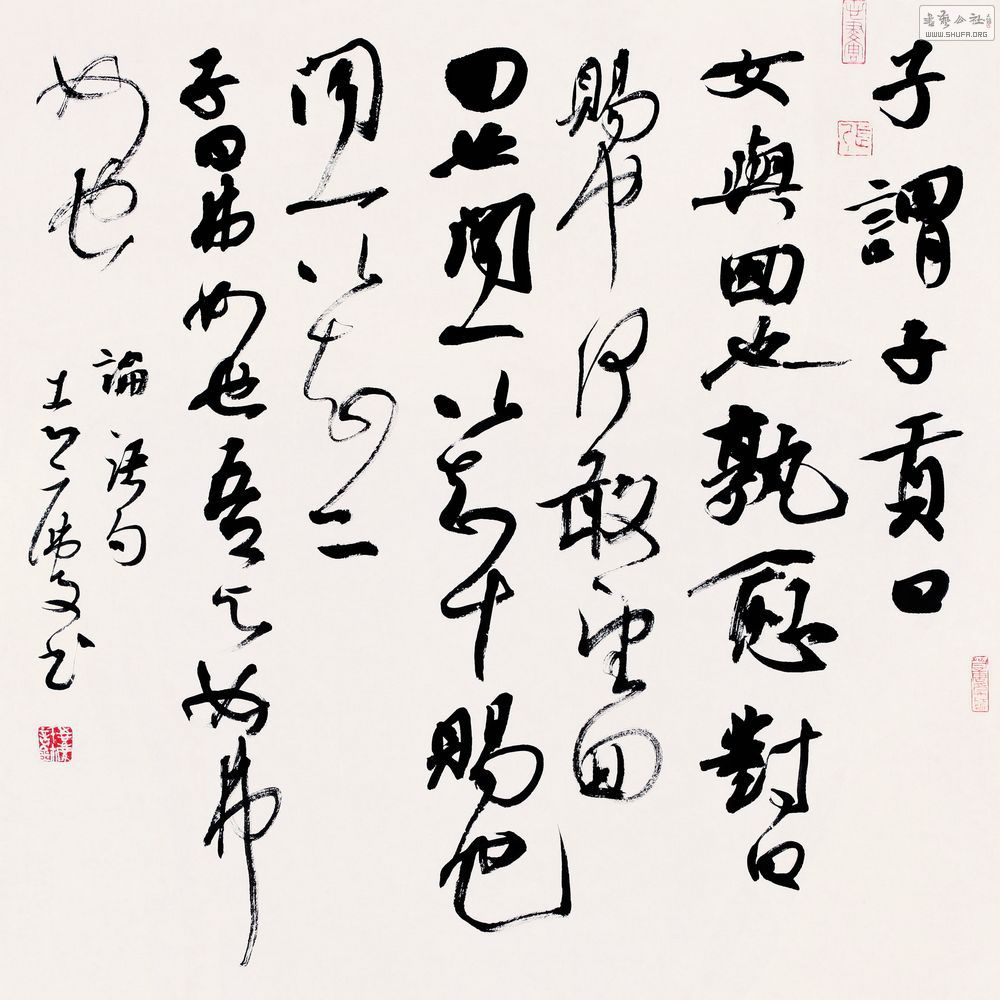 子謂子貢曰
女與回也孰愈對曰
賜也何敢望回
回也聞一以知十賜也
聞一以知二
子曰弗如也吾与女弗
如也
論語句
書藝公社
WWW.SHUFA.ORG